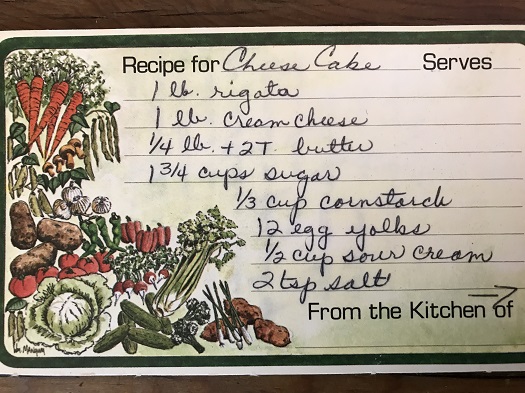 Recipe for Cheese Cake Serves
1 lb. rigata
1 lb. cream cheese
1/4 lb. + 2T. butter
1 3/4 cups sugar
1/3 cup cornstarch
12 egg yolks
1/2 cup sour cream
2 tsp salt
From the Kitchen of